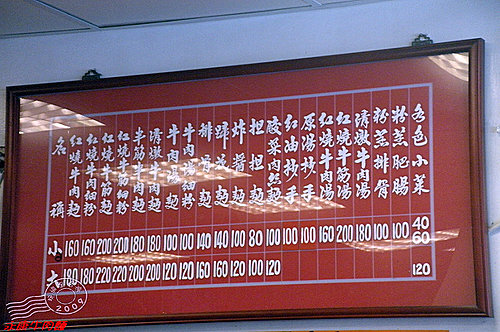 名稱
紅燒牛肉麵
紅燒牛肉細粉
紅燒牛筋麵
紅燒牛筋細粉
半筋半肉麵
清燉牛肉麵
牛肉湯麵
牛肉湯細粉
排骨麵
蹄花麵
炸醬麵
担担麵
酸菜肉絲麵
紅油抄手
原湯抄手
紅燒牛肉湯
紅燒牛筋湯
清燉牛肉湯
粉蒸排骨
粉蒸肥腸
各色小菜
小 160 160 200 200 180 180 100 100 140 140 100 80 100 100 100 160 200 180 100 100 40 60
大 180 180 220 220 200 200 120 120 160 160 120 100 120 120
2009